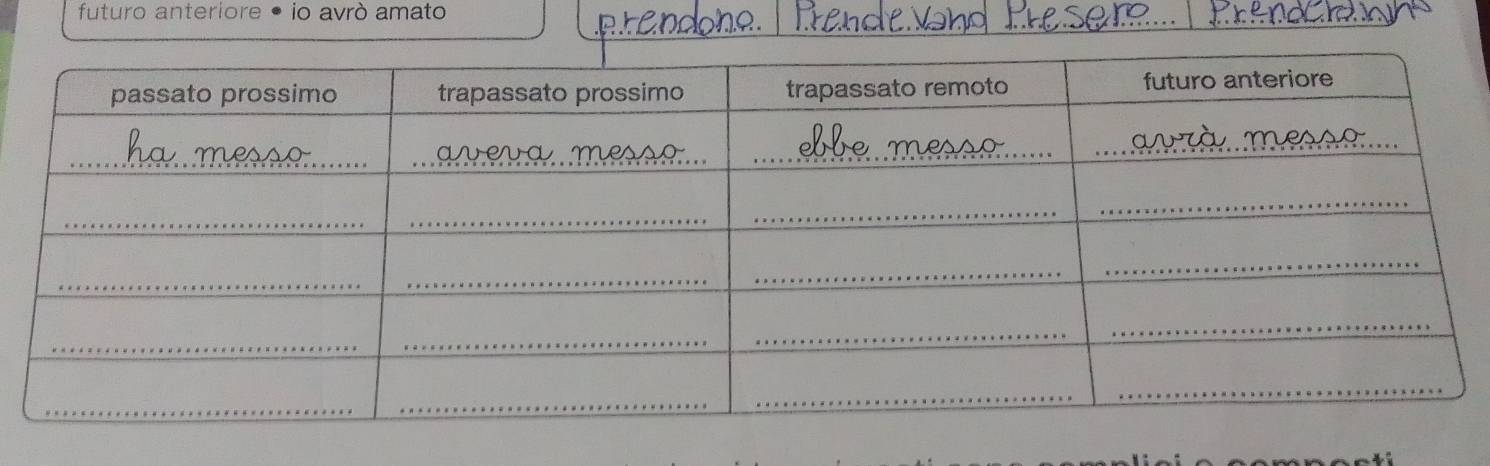 futuro anteriore • io avrò amato
prendono. Prendevano Presero Prenderanno
passato prossimo trapassato prossimo trapassato remoto futuro anteriore
ha messo aveva messo ebbe messo avrà messo